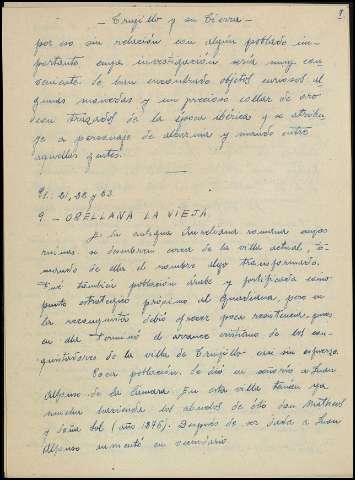 8
- Trujillo y su Tierra -
por eso sin relación con algún poblado im-
portante cuya investigación sería muy con-
veniente. Se han encontrado objetos curiosos al
gunas monedas y un precioso collar de oro
bien trazados de la época ibérica y se atribu
ye a personaje de alcurnia y mando entre
aquellas gentes.
Pl. 21, 22 y 23.
9 - ORELLANA LA VIEJA
Es la antigua Aureliana romana cuyas
ruinas se descubren cerca de la villa actual, to-
mando de ella el nombre algo transformado.
Fué también población árabe y fortificada como
punto estratégico próximo al Guadiana, pero en
la reconquista debió ofrecer poca resistencia, pues
en ella terminó el avance cristiano de los con-
quistadores de la villa de Trujillo casi sin esfuerzo.
Esta población se dió en señorío a Juan
Alfonso de la Cámara. En esta villa tenían ya
mucha hacienda los abuelos de éste don Matheos
y doña Sol (año 1276). Después de ser dada a Juan
Alfonso aumentó su vecindario.